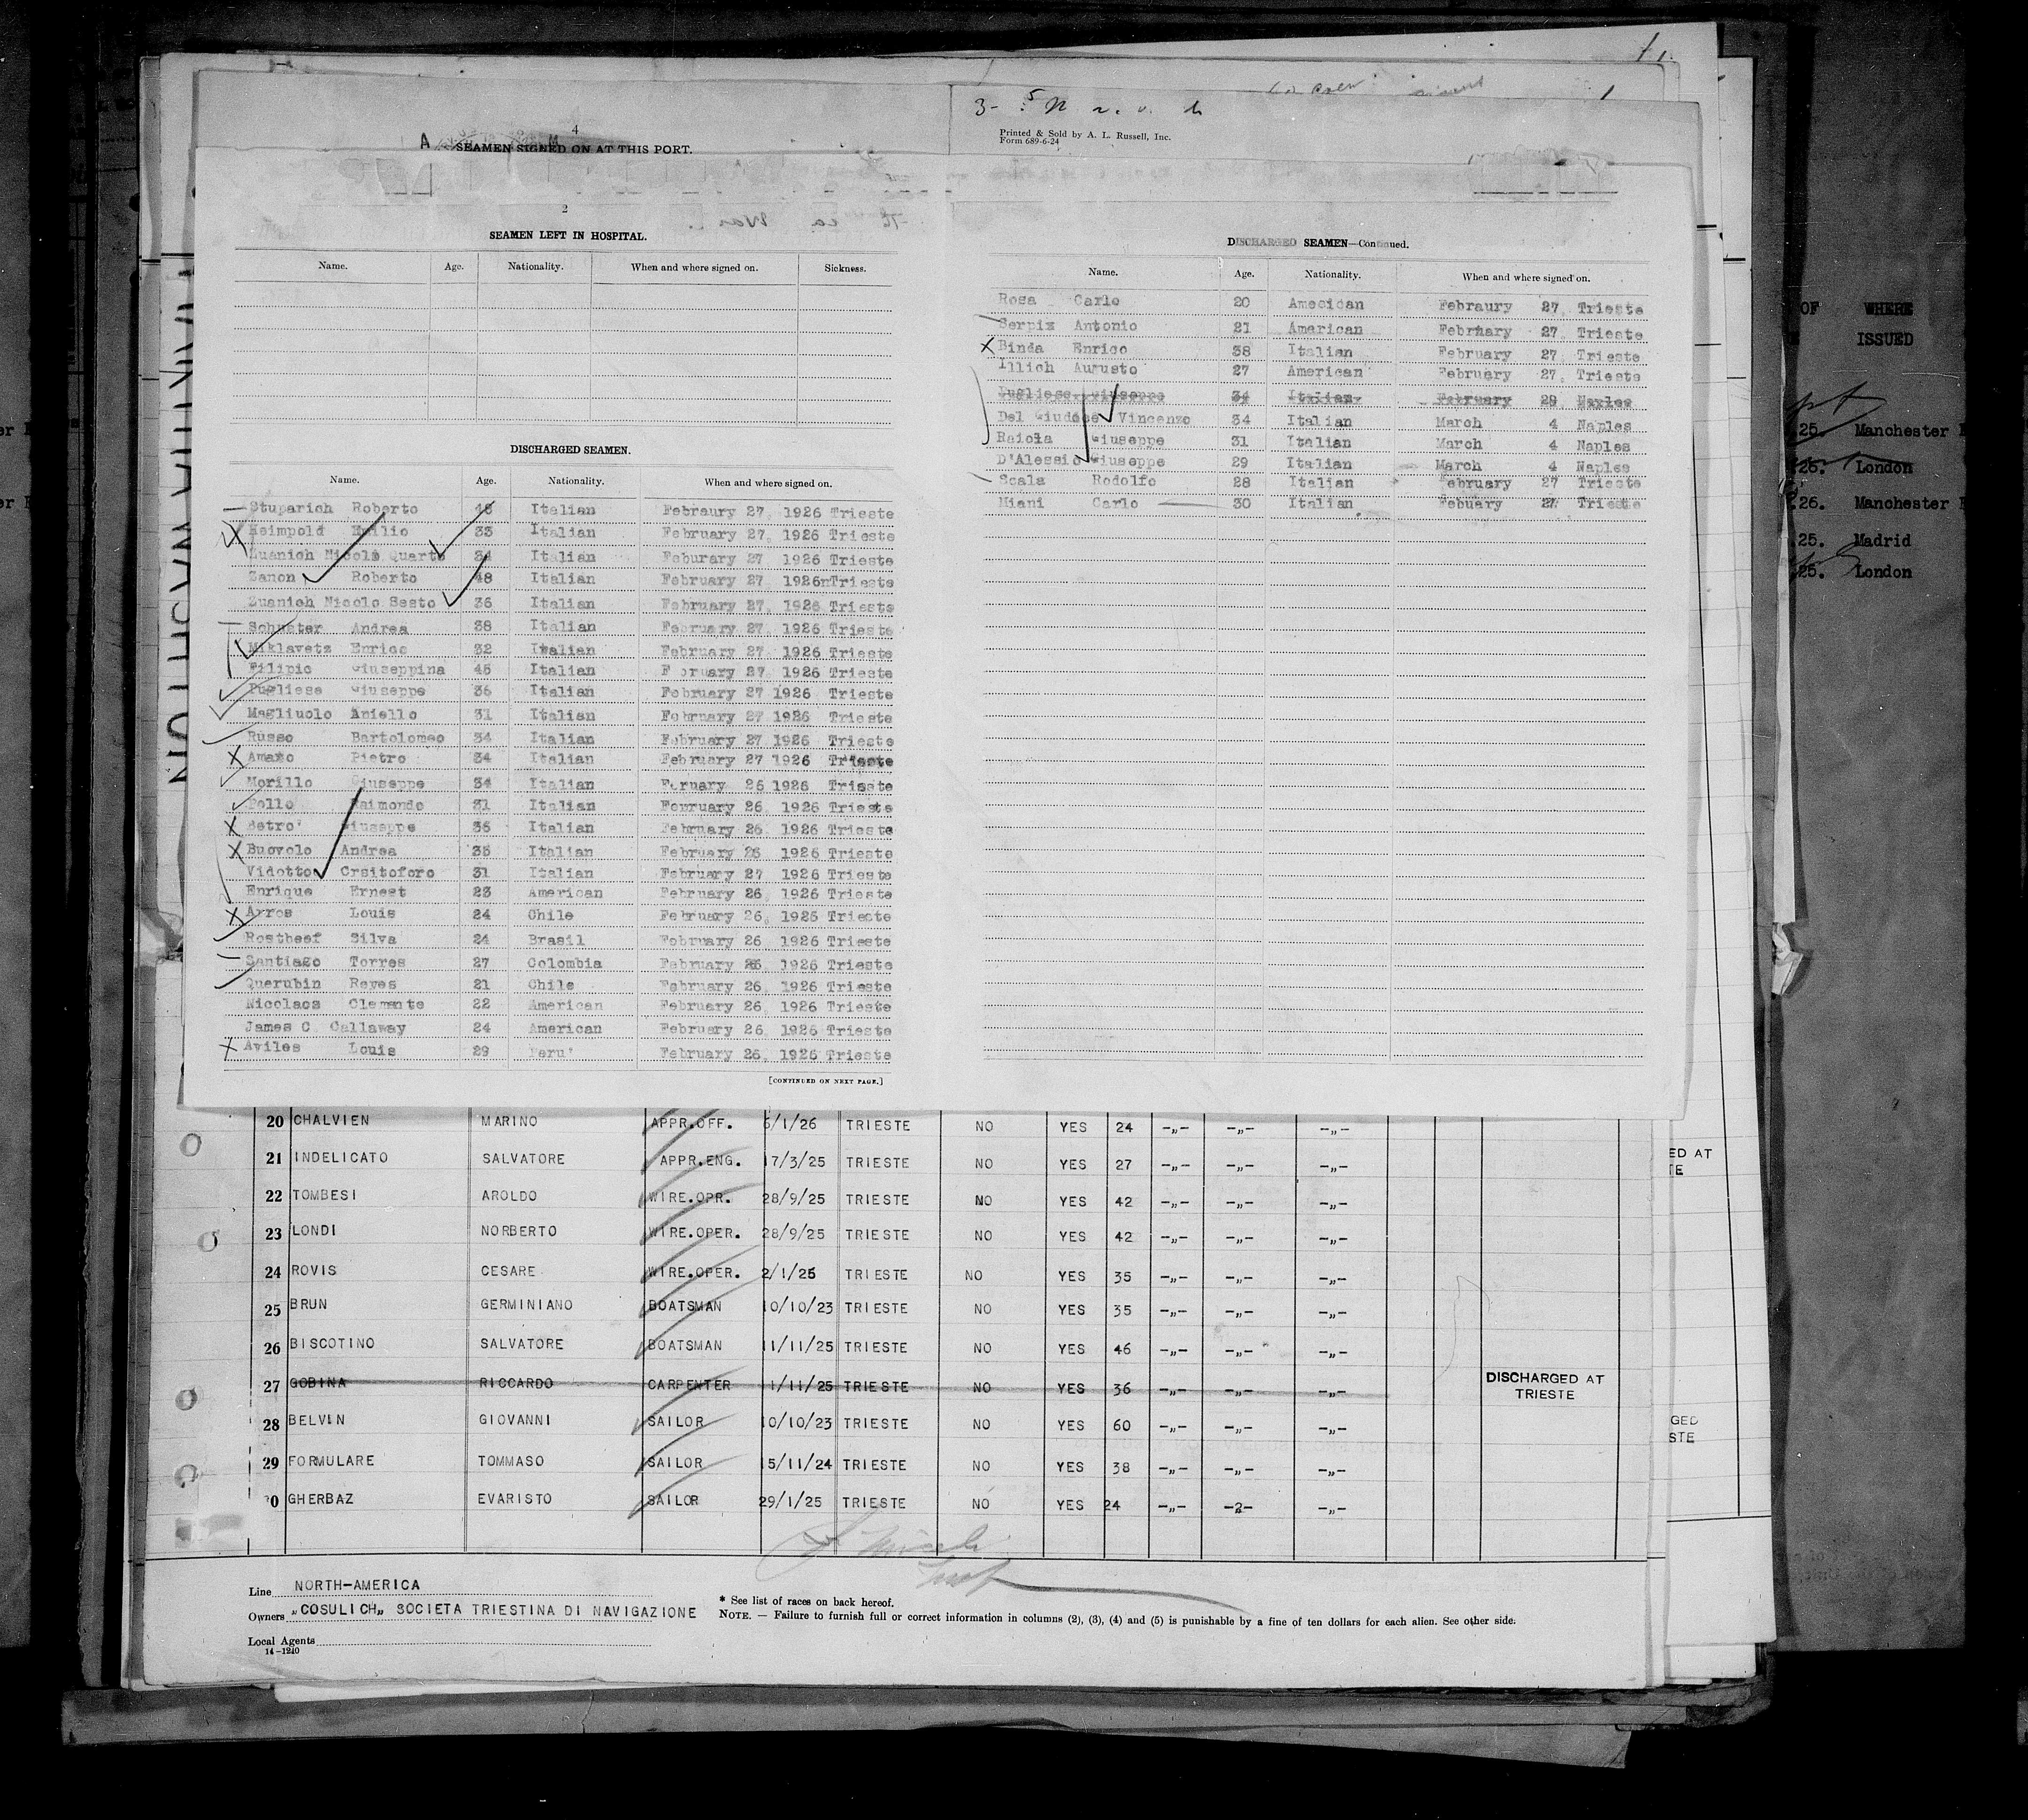 3- 5
Printed & Sold by A. L. Russell, Inc.
Form 689-6-24
4
SEAMEN SIGNED ON AT THIS PORT.
2
SEAMEN LEFT IN HOSPITAL.
Name. Age. Nationality. When and where signed on. Sickness.
DISCHARGED SEAMEN.
Name. Age. Nationality. When and where signed on.
Stuparich Roberto 48 Italian Febraury 27, 1926 Trieste
Heimpold Emilio 33 Italian February 27, 1926 Trieste
Zuanich Nicolo Quarto 34 Italian Feburary 27, 1926 Trieste
Zanon Roberto 48 Italian February 27, 1926nTrieste
Zuanich Nicolo Sesto 36 Italian February 27, 1926 Trieste
Schuster Andrea 38 Italian February 27, 1926 Trieste
Miklavetz Enrico 32 Italian February 27, 1926 Trieste
Filipic Giuseppina 45 Italian F bruary 27, 1926 Trieste
Pugliese Giuseppe 36 Italian February 27 1926 Trieste
Magliuolo Aniello 31 Italian February 27 1926 Trieste
Russo Bartolomeo 34 Italian February 27 1926 Trieste
Amato Pietro 34 Italian February 27 1926 Trieste
Morillo Giuseppe 34 Italian 26 1926 Trieste
Pollo Raimondo 31 Italian February 26, 1926 Trieste
Betro' Giuseppe 36 Italian February 26, 1926 Trieste
Buovolo Andrea 35 Italian February 26 1926 Trieste
Vidotto Crsitoforo 31 Italian February 27 1926 Trieste
Enrique Ernest 23 American February 26, 1926 Trieste
Ayros Louis 24 Chile February 26, 1926 Trieste
Rostbeef Silva 24 Brasil February 26, 1926 Trieste
Santiago Torres 27 Colombia February 26, 1926 Trieste
Querubin Reyes 21 Chile February 26, 1926 Trieste
Nicolaos Clemente 22 American February 26, 1926 Trieste
James C. Callaway 24 American February 26, 1926 Trieste
Aviles Louis 29 Peru' February 26, 1926 Trieste
[CONTINUED ON NEXT PAGE.]
DISCHARGED SEAMEN—Continued.
Name. Age. Nationality. When and where signed on.
Rosa Carlo 20 Amecican Febraury 27, Trieste
Serpix Antonio 21 American February 27, Trieste
Binda Enrico 38 Italian February 27, Trieste
Illich Augusto 27 American February 27, Trieste
Pugliese Giuseppe 34 Italian February 28, Naples
Del Giudice Vincenzo 34 Italian March 4 Naples
Raiola Giuseppe 31 Italian March 4 Naples
D'Alessio Giuseppe 29 Italian March 4 Naples
Scala Rodolfo 28 Italian February 27 Trieste
Miani Carlo 30 Italian Febuary 27 Trieste
OF WHERE
ISSUED
25. Manchester
26. London
26. Manchester
25. Madrid
25. London
20 CHALVIEN MARINO APPR.OFF. 6/1/26 TRIESTE NO YES 24 -„- -„- -„-
21 INDELICATO SALVATORE APPR.ENG. 17/3/25 TRIESTE NO YES 27 -„- -„- -„-
22 TOMBESI AROLDO WIRE.OPR. 28/9/25 TRIESTE NO YES 42 -„- -„- -„-
23 LONDI NORBERTO WIRE.OPER. 28/9/25 TRIESTE NO YES 42 -„- -„- -„-
24 ROVIS CESARE WIRE.OPER. 2/1/25 TRIESTE NO YES 35 -„- -„- -„-
25 BRUN GERMINIANO BOATSMAN 10/10/23 TRIESTE NO YES 35 -„- -„- -„-
26 BISCOTINO SALVATORE BOATSMAN 11/11/25 TRIESTE NO YES 46 -„- -„- -„-
27 GOBINA RICCARDO CARPENTER 1/11/25 TRIESTE NO YES 36 -„- -„- -„- DISCHARGED AT
TRIESTE
28 BELVIN GIOVANNI SAILOR 10/10/23 TRIESTE NO YES 60 -„- -„- -„-
29 FORMULARE TOMMASO SAILOR 15/11/24 TRIESTE NO YES 38 -„- -„- -„-
30 GHERBAZ EVARISTO SAILOR 29/1/25 TRIESTE NO YES 24 -„- -2- -„-
ED AT
TE
GED
STE
Line NORTH-AMERICA
Owners „COSULICH„ SOCIETA TRIESTINA DI NAVIGAZIONE
Local Agents
14-1240
* See list of races on back hereof.
NOTE. — Failure to furnish full or correct information in columns (2), (3), (4) and (5) is punishable by a fine of ten dollars for each alien. See other side.